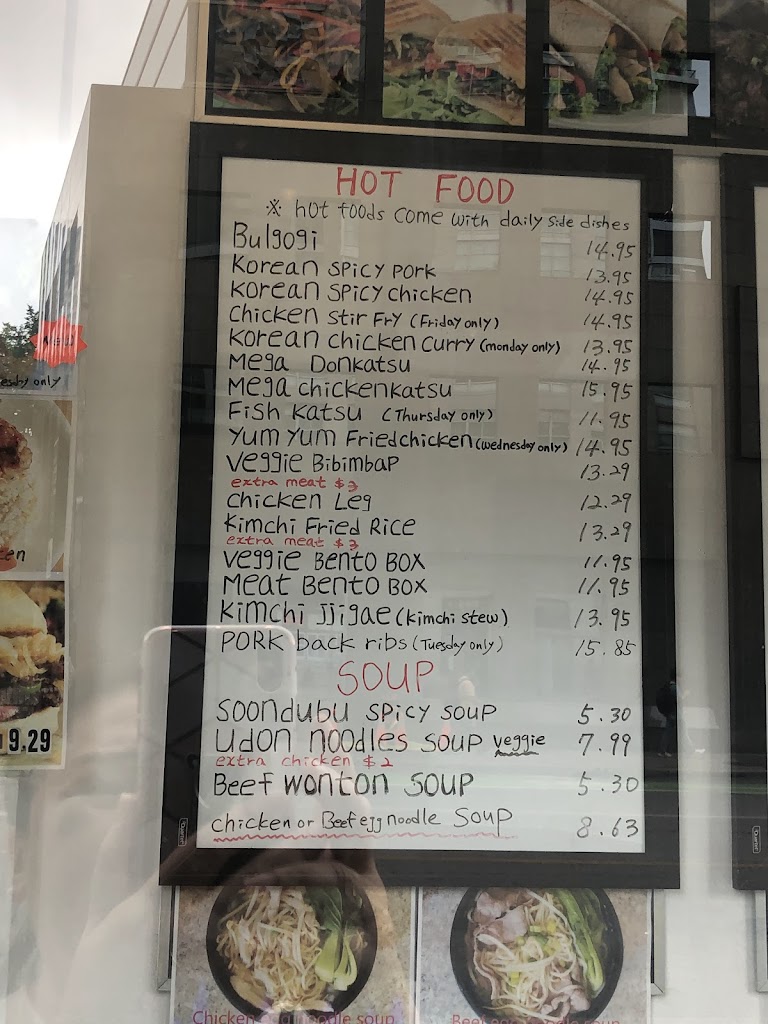 HOT FOOD
※ hot foods come with daily side dishes
Bulgogi 14.95
Korean spicy pork 13.95
Korean spicy chicken 14.95
Chicken Stir Fry (Friday only) 14.95
Korean chicken curry (monday only) 13.95
Mega Donkatsu 14.95
Mega chickenkatsu 15.95
Fish Katsu (Thursday only) 11.95
Yum Yum Fried chicken (wednesday only) 14.95
Veggie Bibimbap 13.29
extra meat $3
chicken Leg 12.29
Kimchi Fried Rice 13.29
extra meat $3
Veggie Bento Box 11.95
Meat Bento Box 11.95
Kimchi JJigae (kimchi stew) 13.95
Pork back ribs (Tuesday only) 15.85
SOUP
Soondubu spicy soup 5.30
Udon noodles soup veggie 7.99
extra chicken $2
Beef wonton soup 5.30
chicken or Beef egg noodle soup 8.63
only
9.29
Chicken noodle soup
Beef noodle soup